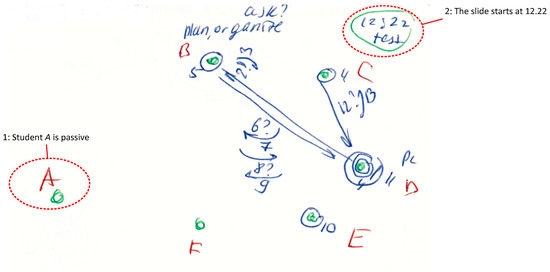 ask?
plan, organise
B
5
2?
3
12;22
tess
2: The slide starts at 12.22
4
C
12?
B
6?
7
8?
9
PC
11
D
1: Student A is passive
A
10
E
F